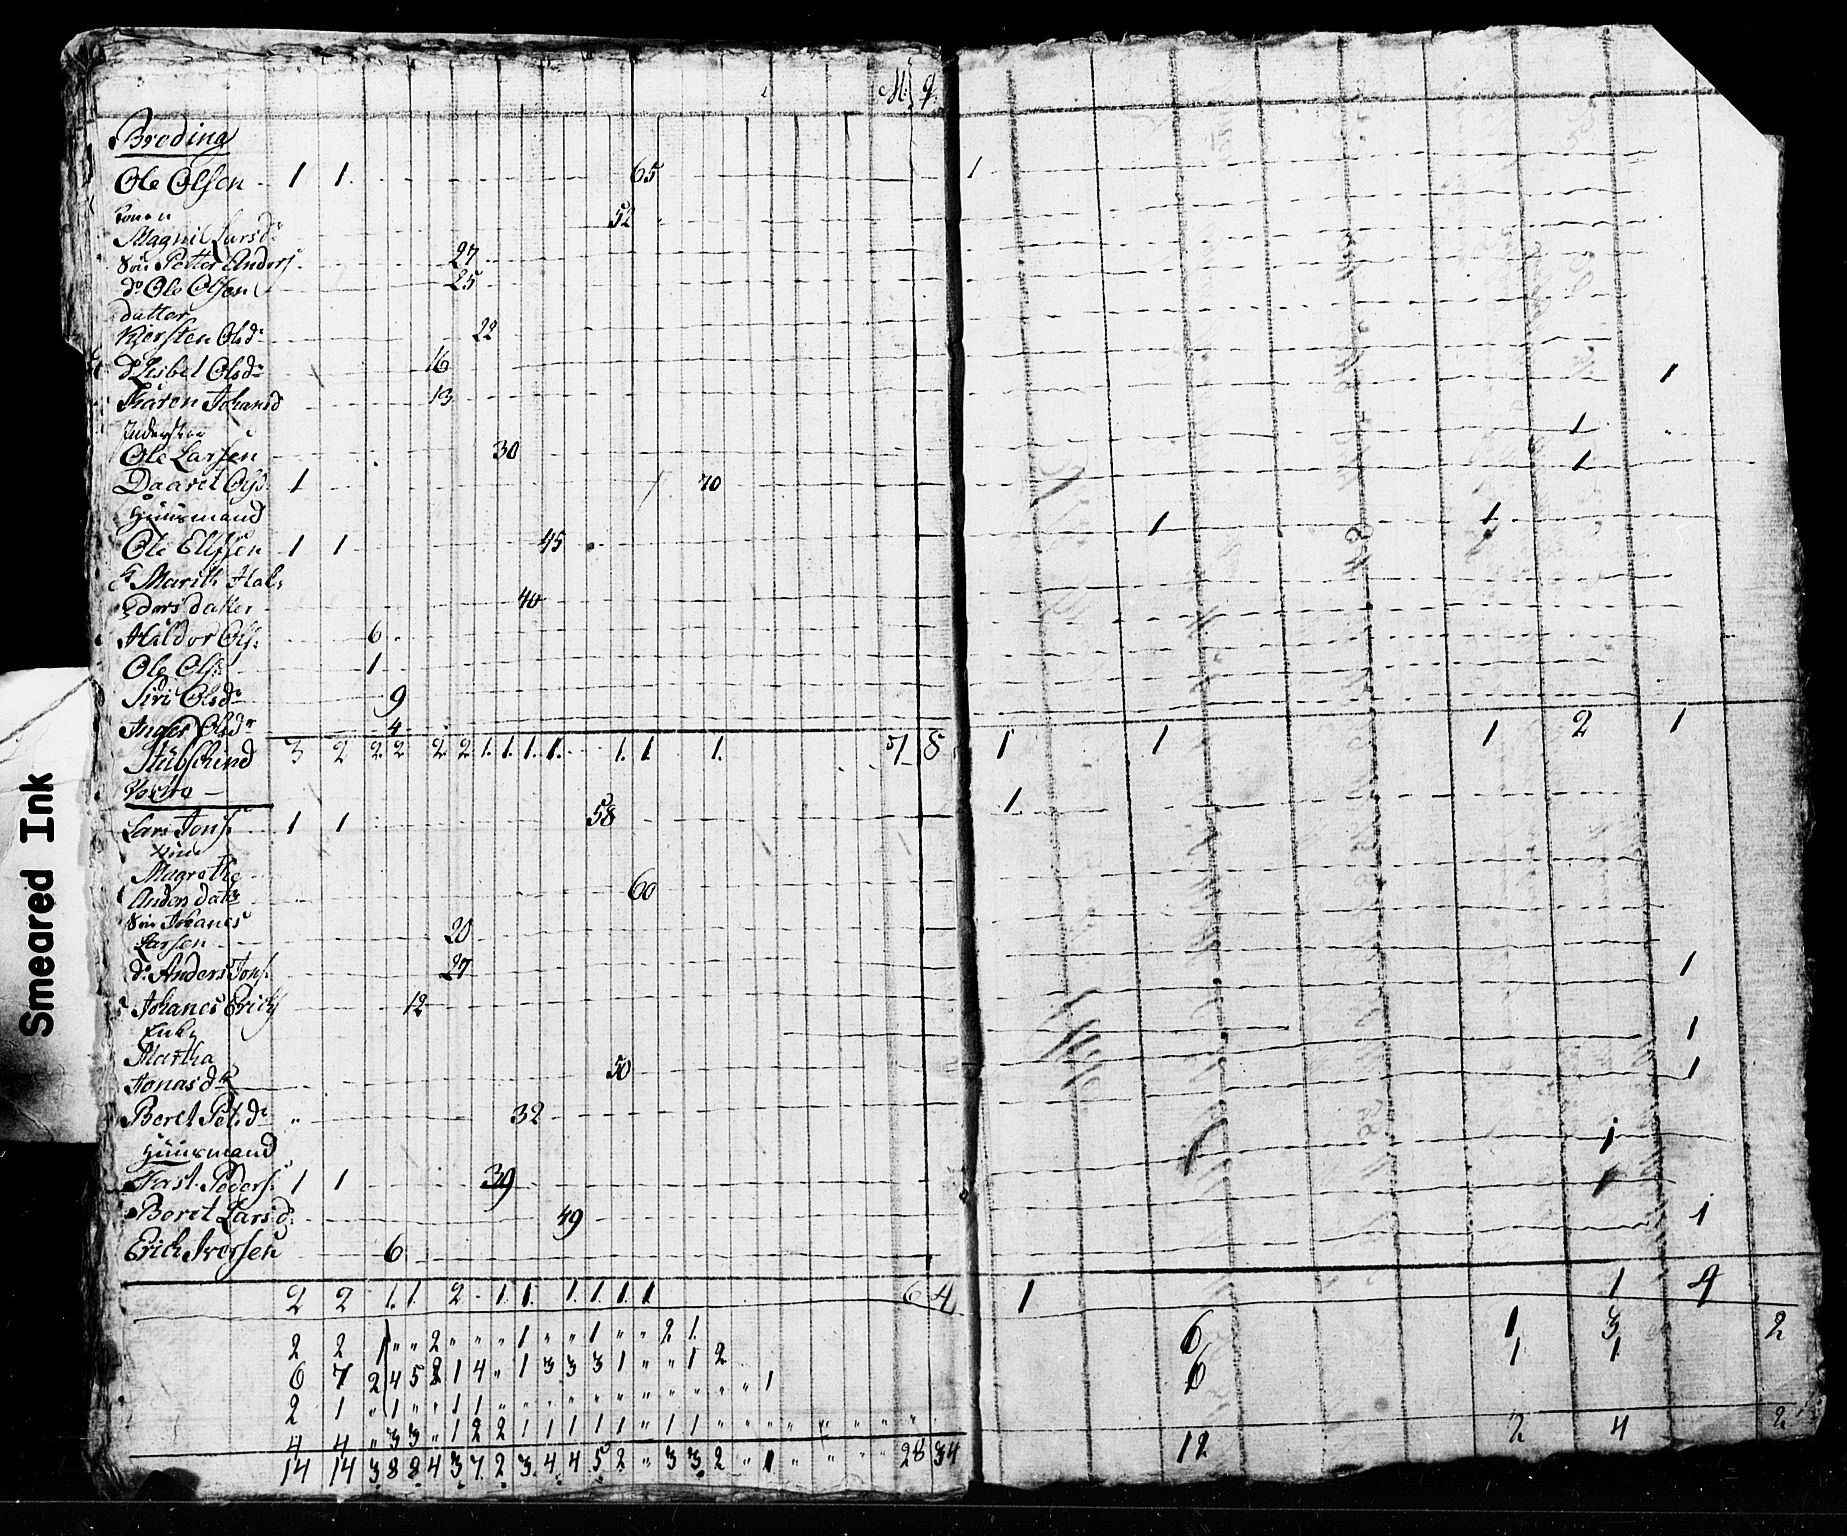 M. q
Broding
Ole Olsen 1 1 65 1
konen
Magnil Larsd. 52
Søn Petter Anders. 27
do Ole Olsen 25
datter
Kjersten Olsd. 22
do Lisbel Olsd. 16 1
Karen Johansd 13
1
Ole Larsen 30
1
Daaret Olsd. 1 70
Huusmand 1 1
Ole Ellefsen 1 1 45
k Marith Hal-
dorsdatter 40
Haldor Ols. 6
Ole Ols. 1
Siri Olsd. 9
Inger Olsd. 4
3 2 2 2 2 2 1. 1. 1. 1. 1. 1 1. 7 8 1 1 1 2 1
1
Lars Jons. 1 1 58
Magrethe
Andersdatr 60
Søn Johanes
Larsen 20
do Anders Jons. 27 1
Johanes Erichs 12
Enke 1
Martha
Jonasdr 50 1
Beret Petd. " 32
Huusmand 1
Fast. Peders. 1 1 39 1
Beret Larsd. 49 1
Erich Iversen 6
2 2 1. 1. 2 1. 1. 1. 1. 1. 1 6 4 1 1 4
2 2 1 " " 2 " " " 1 " " 1 " " 2 1. 6 1 3 2
6 7 2 4 5 2 1 4 " 1 3 3 3 1 " " 1 2 6 1 1
2 1 " 1 " " 1 1 " " " " " " " " " " " 1
4 4 " 3 3 " 1 2 2 1 1 1 1 1 " 1 1 " " " " " " " "
14 14 3 8 8 4 3 7 2 3 4 4 5 2 " 3 3 2 " 1 " " " " 28 34 12 2 4 2
Smeared Ink